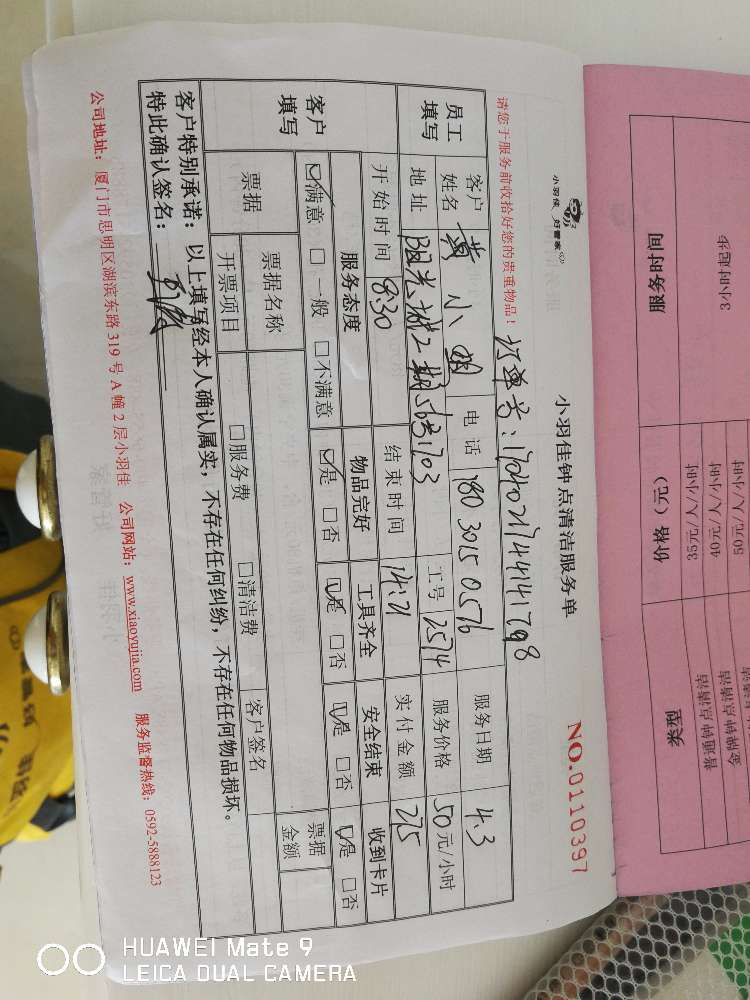 小羽佳 好管家
小羽佳钟点清洁服务单
NO.0110397
请您于服务前收拾好您的贵重物品！
订单号：
员工填写
客户姓名 黄小明 电话 180 3015 0576 服务日期 4.3
地址 阳光城2期 工号 2574 服务价格 50元/小时
开始时间 8:30 结束时间 14:21 实付金额 275
客户填写
服务态度 物品完好 工具齐全 安全结束 收到卡片
☑满意 □一般 □不满意 ☑是 □否 ☑是 □否 ☑是 □否 ☑是 □否
票据 票据名称 票据金额
开票项目 □服务费 □清洁费 客户签名
客户特别承诺：以上填写经本人确认属实，不存在任何纠纷，不存在任何物品损坏。
特此确认签名：
公司地址：厦门市思明区湖滨东路319号A幢2层小羽佳 公司网站：www.xiaoyujia.com 服务监督热线：0592-5888123
服务时间 价格（元） 类型
3小时起步 35元/人/小时 普通钟点清洁
40元/人/小时 金牌钟点清洁
50元/人/小时
HUAWEI Mate 9
LEICA DUAL CAMERA